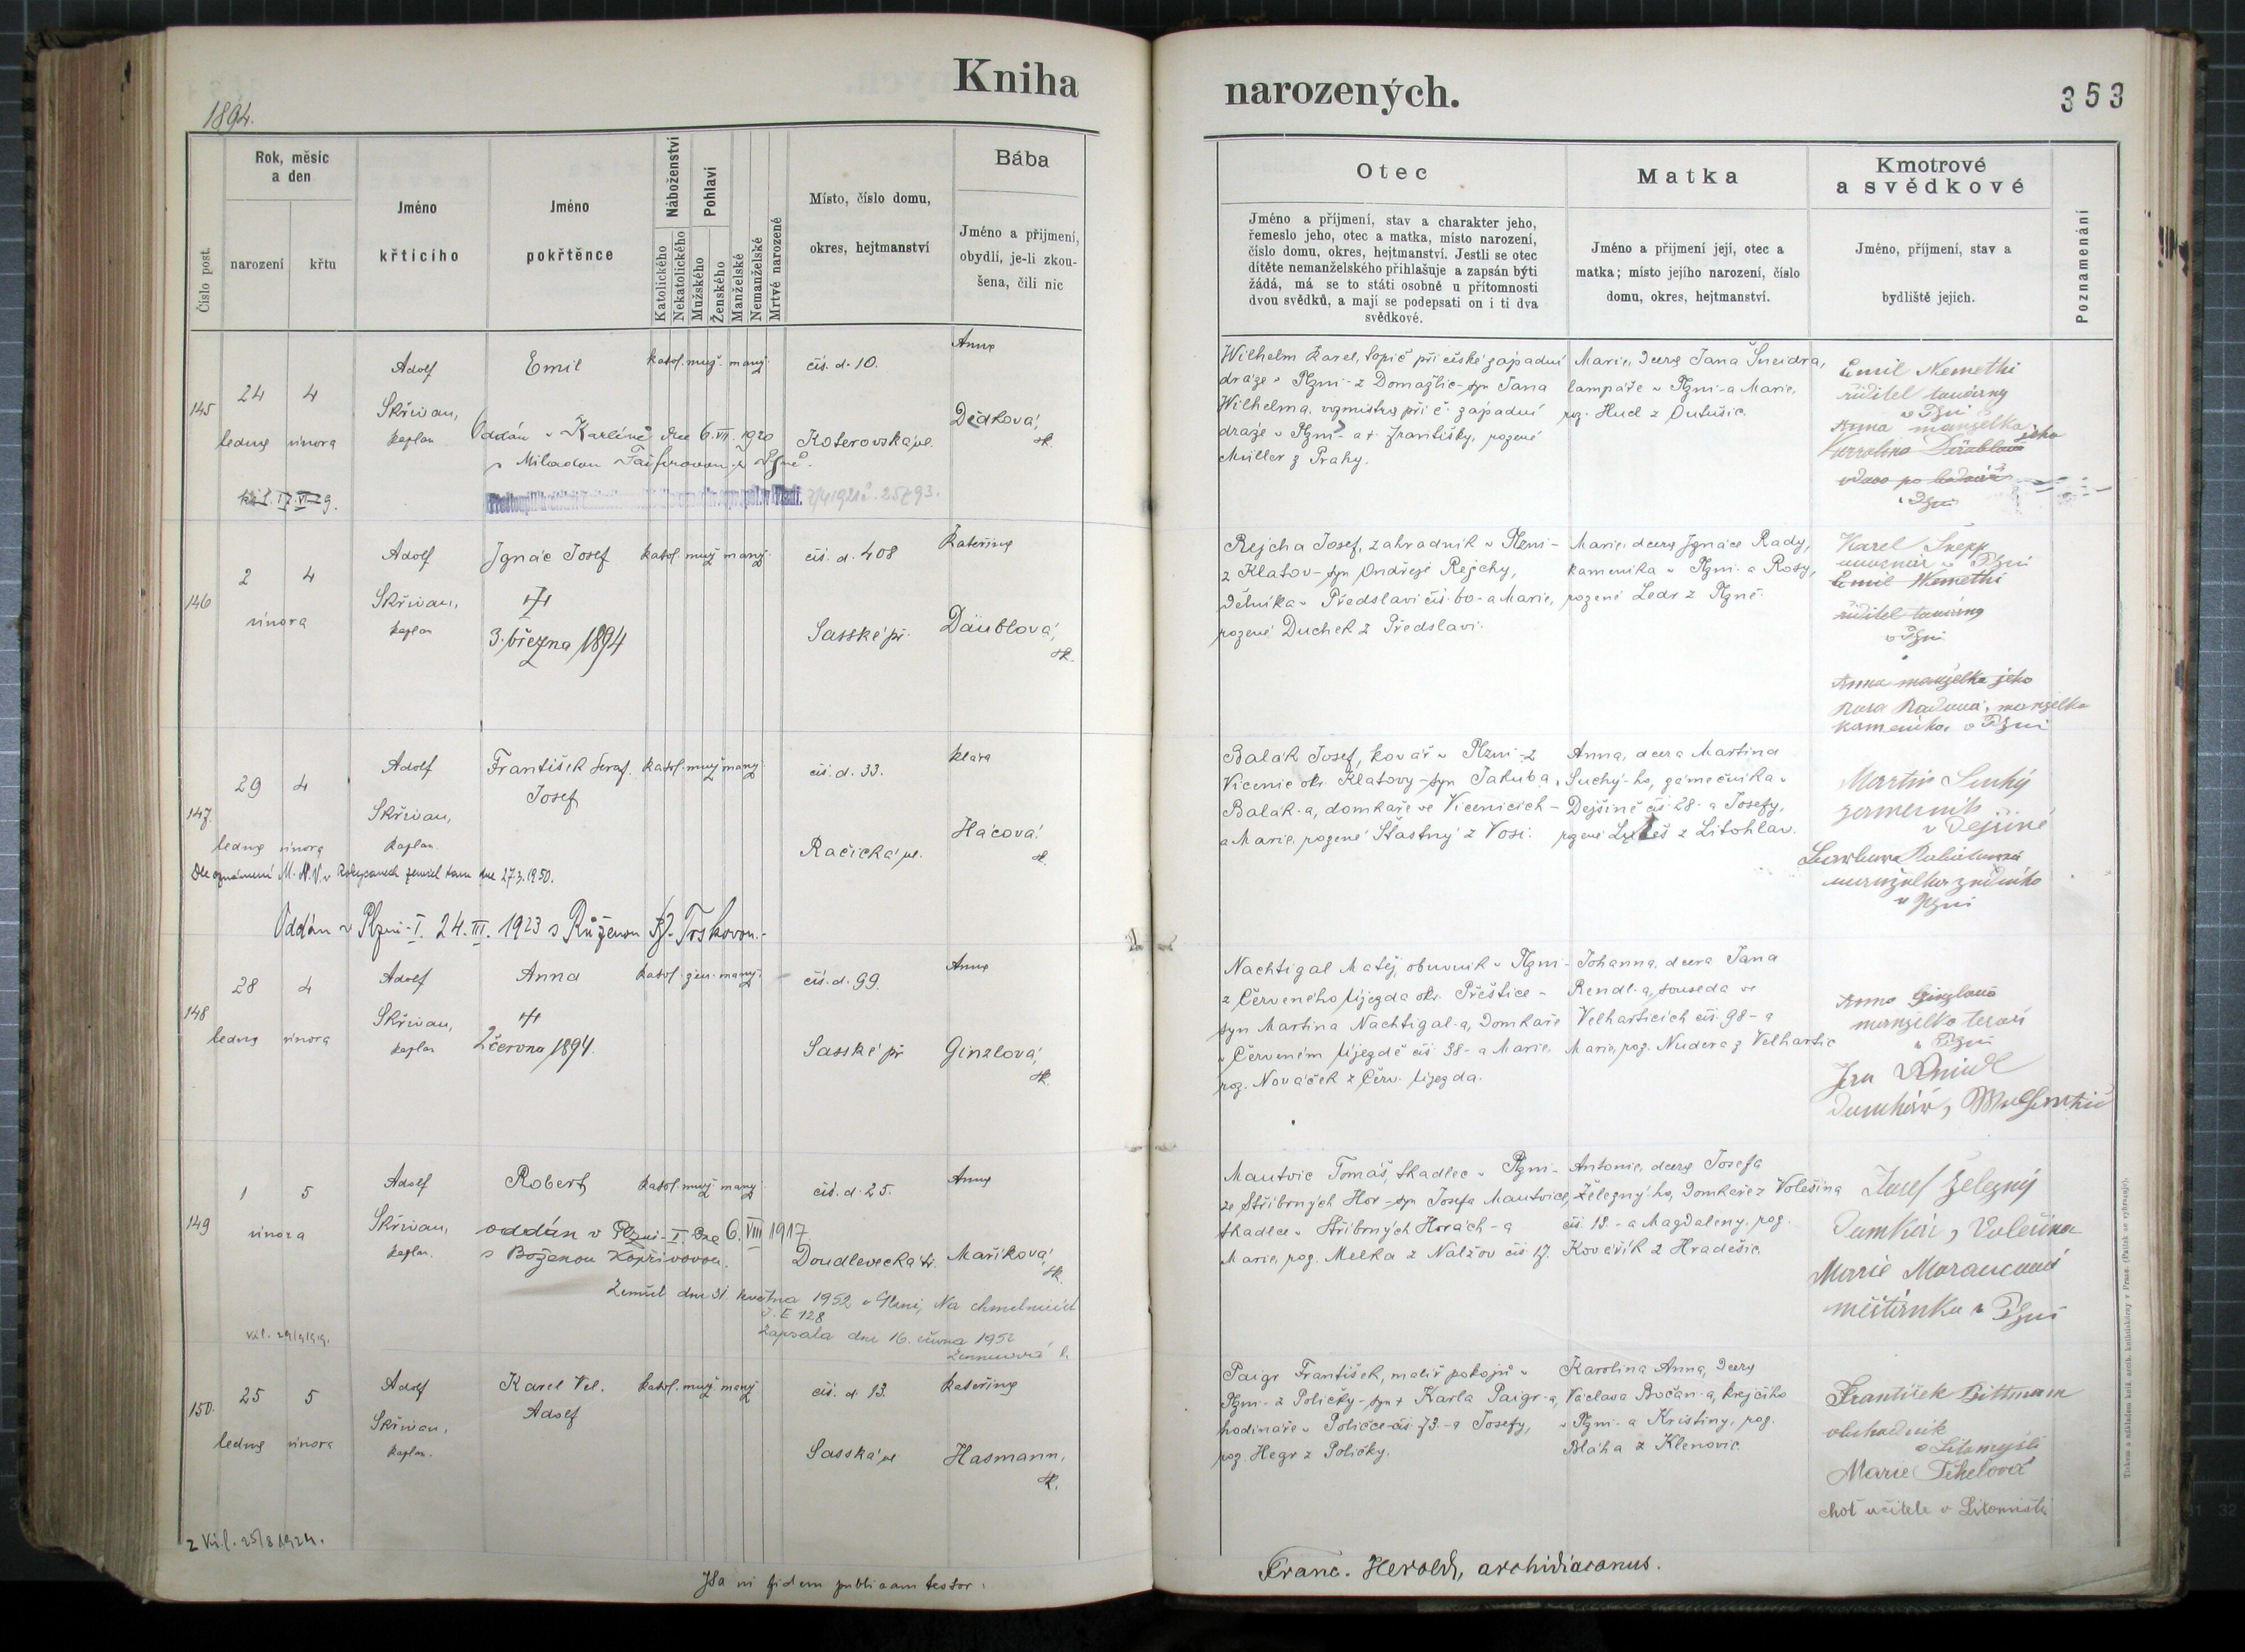 Kniha
narozených.
353
1894.
Číslo post.
Rok, měsíc
a den
narození
křtu
Jméno
křticího
Jméno
pokřtěnce
Náboženství
Katolického
Nekatolického
Pohlaví
Mužského
Ženského
Manželské
Nemanželské
Mrtvě narozené
Místo, číslo domu,
okres, hejtmanství
Bába
Jméno a přijmení,
obydlí, je-li zkou-
šena, čili nic
Otec
Jméno a příjmení, stav a charakter jeho,
řemeslo jeho, otec a matka, místo narození,
číslo domu, okres, hejtmanství. Jestli se otec
dítěte nemanželského přihlašuje a zapsán býti
žádá, má se to státi osobně u přítomnosti
dvou svědků, a mají se podepsati on i ti dva
svědkové.
Matka
Jméno a přijmení její, otec a
matka; místo jejího narození, číslo
domu, okres, hejtmanství.
Kmotrové
a svědkové
Jméno, příjmení, stav a
bydliště jejich.
Poznamenání
145
24 4
ledna února
Adolf
Skřivan,
kaplan
Emil
katol. muž. manž.
čís. d. 10.
Koterovská ul.
Anna
Dědková,
zk.
Oddán v Karlíně dne 6. VI. 1920
s Miladou
7/4 1921 č. 25793.
Wilhelm Karel, topič při české západní
dráze v Plzni - z Domažlic - syn Jana
Wilhelma, vozmistra při č. západní
dráze v Plzni - a † Františky, rozené
Müller z Prahy.
Marie, dcera Jana Šneidra,
lampáře v Plzni - a Marie,
roz. Hucl z Outušic.
Emil Nemethi
ředitel továrny
v Plzni
Anna manželka jeho
146
2 4
února
Adolf
Skřivan,
kaplan
Ignác Josef
3. března 1894
katol. muž. manž.
čís. d. 408
Sasské př.
Kateřina
Däublová,
zk.
Rejcha Josef, zahradník v Plzni -
z Klatov - syn Ondřeje Rejchy,
dělníka v Předslavi čís. 60. - a Marie,
rozené Duchek z Předslavi.
Marie, dcera Ignáce Rady,
kameníka v Plzni - a Rosy,
rozené Ledr z Plzně.
Karel
v Plzni
Emil Nemethi
ředitel továrny
v Plzni
Anna manželka jeho
Rosa Radová, manželka
kameníka v Plzni
147.
29 4
ledna února
Adolf
Skřivan,
kaplan.
František Seraf.
Josef
katol. muž. manž.
čís. d. 33.
Račická ul.
Klára
Hácová,
zk.
Dle oznámení M. N. V. v Rokycanech zemřel tam dne 27.3.1950.
Oddán v Plzni - I. 24. III. 1923 s Růženou Trskovou.
Balák Josef, kovář v Plzni - z
Vícenic okr. Klatovy - syn Jakuba
Balák-a, domkáře ve Vícenicích -
a Marie, rozené Šťastný z Vosí.
Anna, dcera Martina
Suchý-ho, zámečníka v
Dejšině čís. 28 - a Josefy,
rozené z Litohlav.
Martin Suchý
v Dejšině
v Plzni
148
28 4
ledna února
Adolf
Skřivan,
kaplan
Anna
2 června 1894.
katol. žen. manž.
čís. d. 99.
Sasské př
Anna
Ginzlová,
zk.
Nachtigal Matěj, obuvník v Plzni -
z Červeného Újezda okr. Přeštice -
syn Martina Nachtigal-a, domkáře
v Červeném Újezdě čís. 38 - a Marie,
roz. Nováček z Červ. Újezda.
Johanna, dcera Jana
Rendl-a, souseda ve
Velharticích čís. 98 - a
Marie, roz. Nudera z Velhartic
Anna Ginzlová
manželka
v Plzni
Jan
149
1 5
února
Adolf
Skřivan,
kaplan.
Robert
katol. muž. manž.
čís. d. 25.
Doudlevecká tř.
Anna
Maříková,
zk.
oddán v Plzni - I. dne 6. VIII 1917
s Boženou Kopřivovou.
Zemřel dne 31. května 1952 v Plzni, Na chmelnicích
č. E 128
Zapsala dne 16. června 1952
Mautvic Tomáš, tkadlec v Plzni -
ze Stříbrných Hor - syn Josefa Mautvice,
tkadlce v Stříbrných Horách - a
Marie, roz. Melka z Nalžov čís. 17.
Antonie, dcera Josefa
Železný-ho, domkáře z Volešina
čís. 12. - a Magdaleny, roz.
Kovářík z Hradešic.
Josef Železný
domkář z Volešina
Marie
měšťanka v Plzni
150.
25 5
ledna února
Adolf
Skřivan,
kaplan.
Karel Vel.
Adolf
katol. muž. manž.
čís. d. 13.
Sasská ul
Kateřina
Hasmann,
zk.
2 Vii. l. 25/8 1924.
Paigr František, malíř pokojů v
Plzni - z Poličky - syn † Karla Paigr-a,
hodináře v Poličce čís. 73. - a Josefy,
roz. Hegr z Poličky.
Karolina Anna, dcera
Václava Bočan-a, krejčího
v Plzni - a Kristiny, roz.
Bláha z Klenovic.
František Bittmann
obchodník
v Litomyšli
Marie
choť učitele v Litomyšli
In fidem publicam testor:
Franc. Herold, archidiaconus.